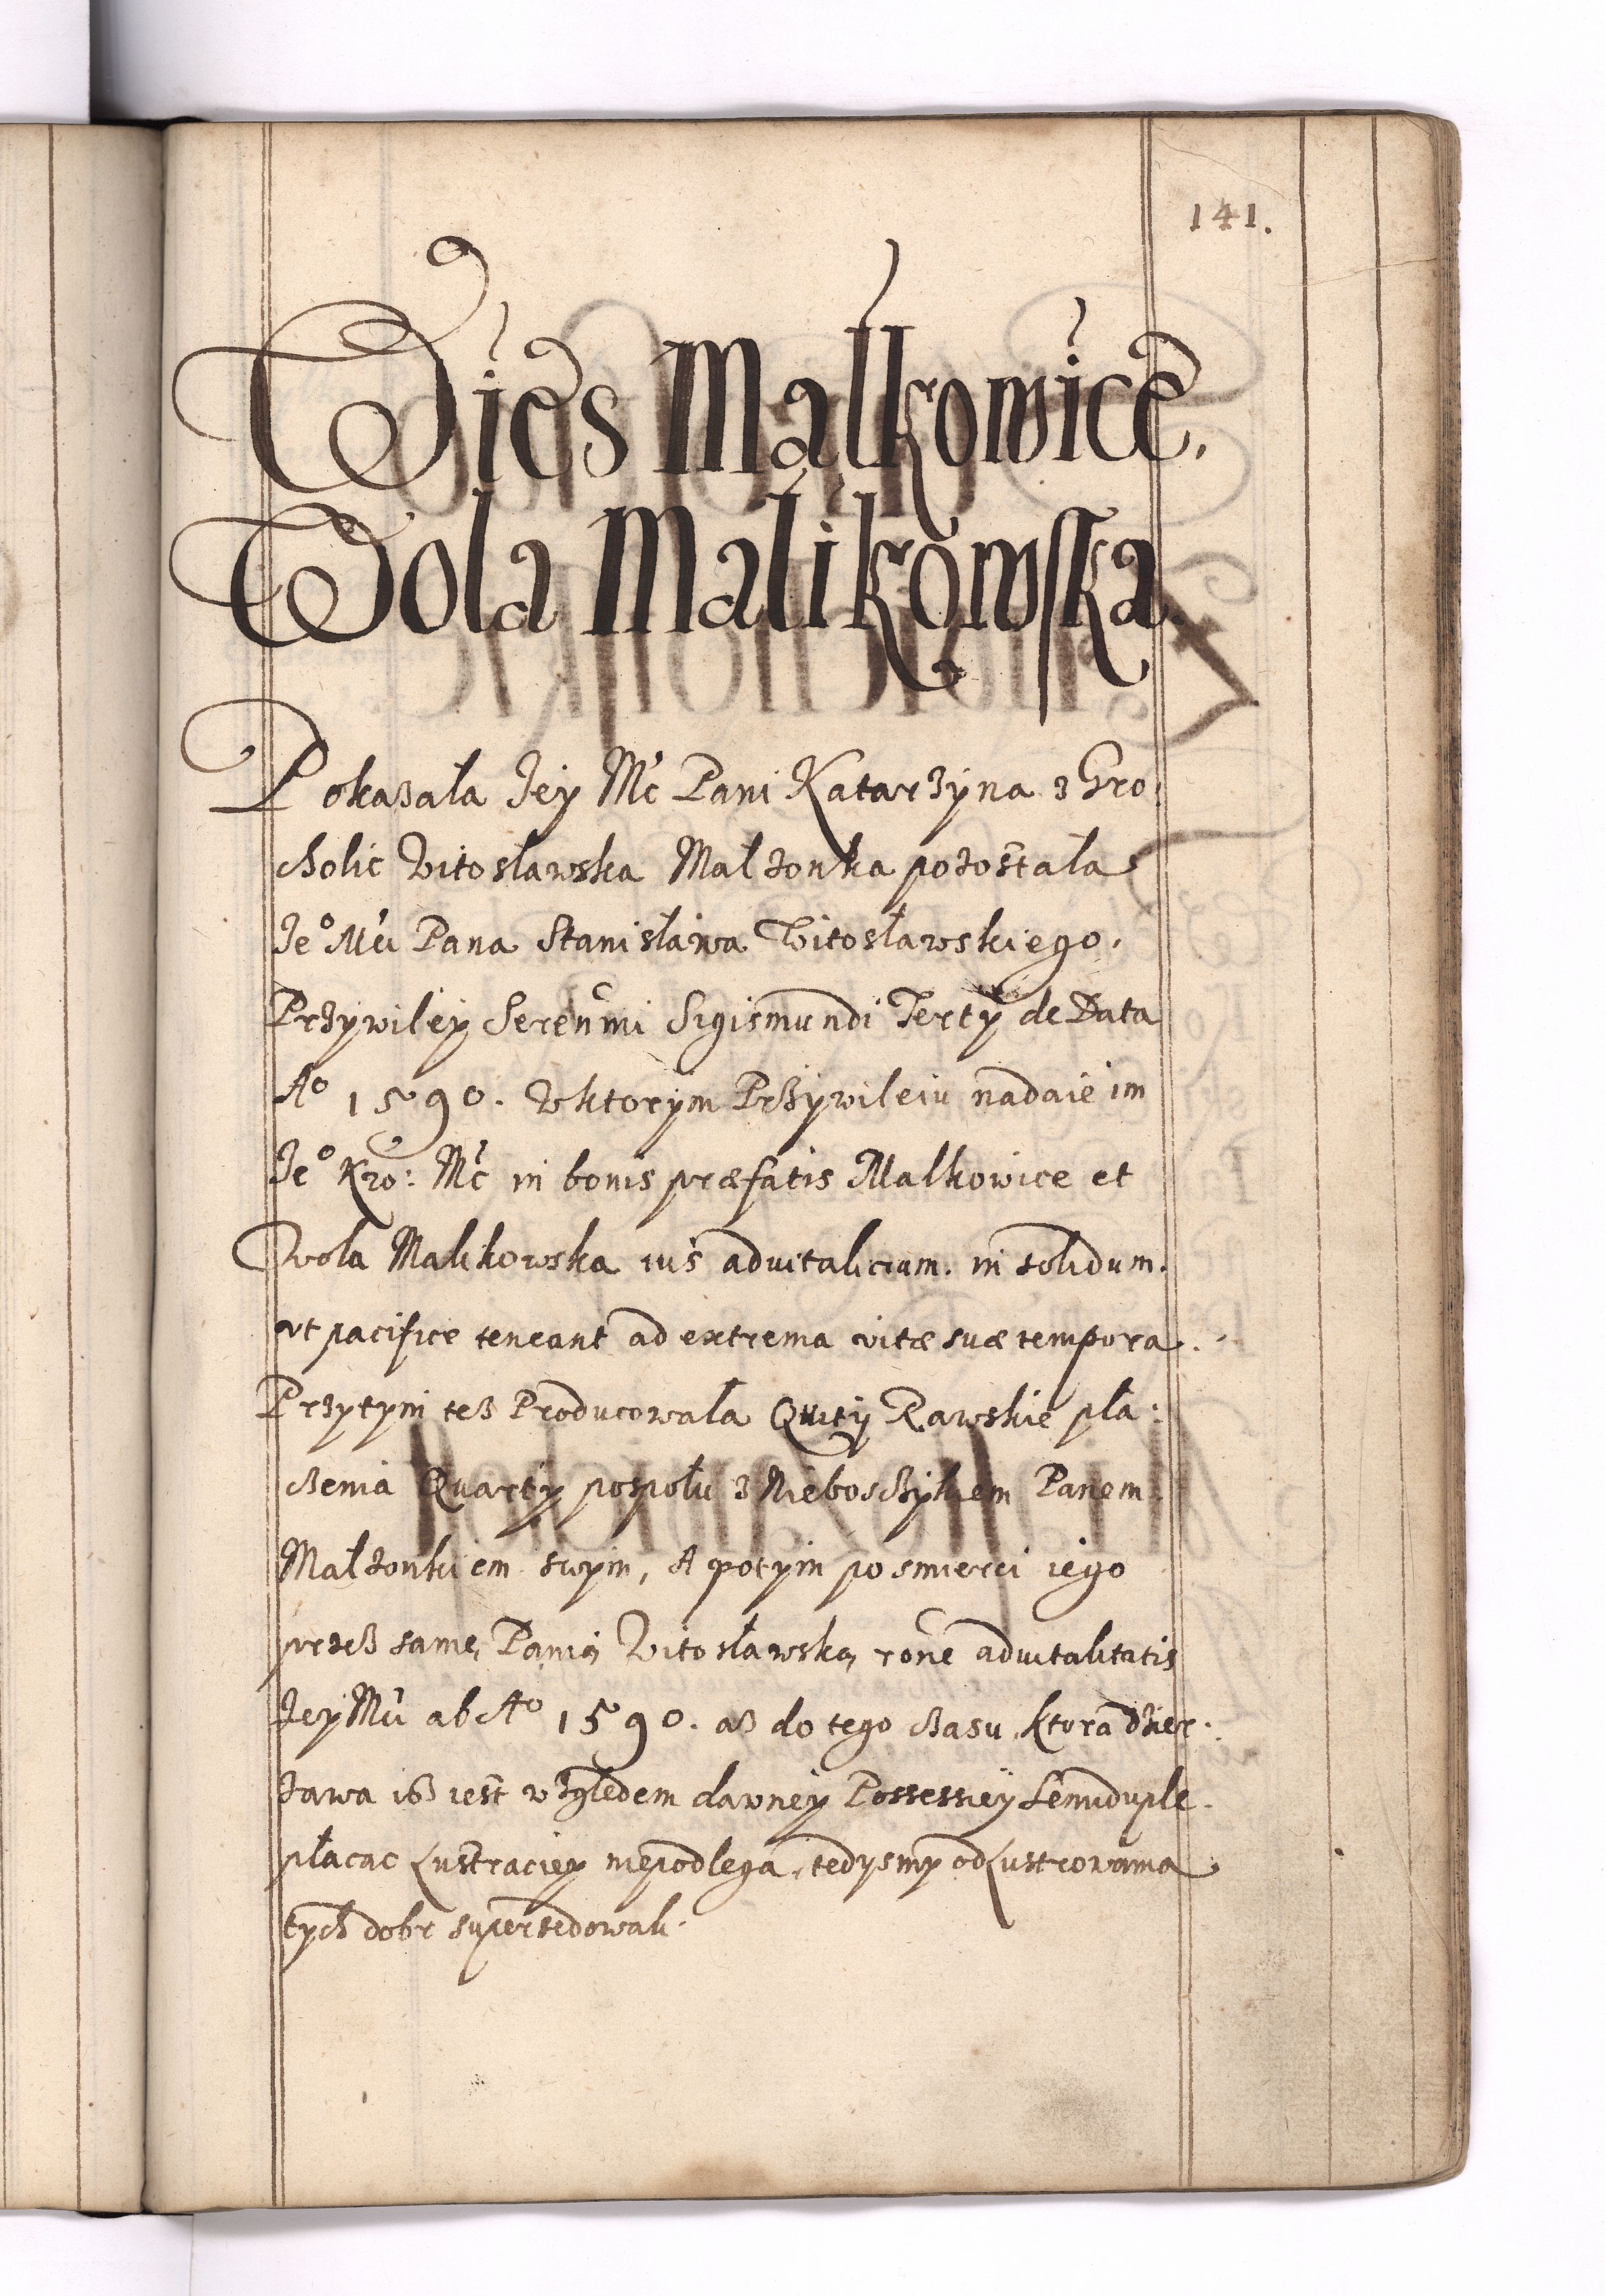 141.
Wieś Malkowice,
Wola Malikowska
Pokazała Jey Mć Pani Katarzyna z Gro:
cholic Witosławska Małżonka pozostała
Je° Mći Pana Stanisława Witosławskiego.
Przywiley Serenmi Sigismundi Tertÿ de Data
A° 1590. Wktorym Przywileiu nadaie im
Je° Kro: Mć in bonis præfatis Malkowice et
Wola Malikowska ius advitalicium. in solidum.
vt pacifice teneant ad extrema vitæ suæ tempora.
Przytym tesz Producowała Quity Rawskie pła:
czenia Quarty pospołu z Nieboszczykem Panem
Małżonkiem swym, A potym po smierci iego
przesz samę Panią Witosławską rone advitalitatis
Jey Mći ab A° 1590. asz do tego czasu, ktora dzier:
zawa isz iest względem dawney Possessiey Semiduple
płacac Lustraciey niepodlega, tedysmy od Lustrowania
tych dobr supersedowali.